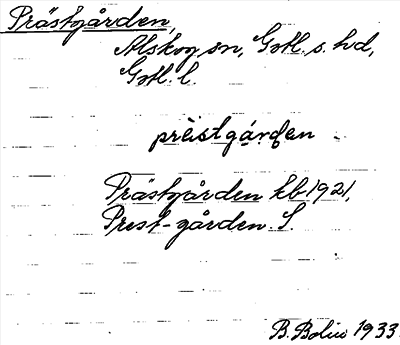 Prästgården,
Alskog sn, Gotl. s. hd,
Gotl. l.
prèistgárden
Prästgården kb 1921,
Prest-gården. S.
B. Bolin 1933.